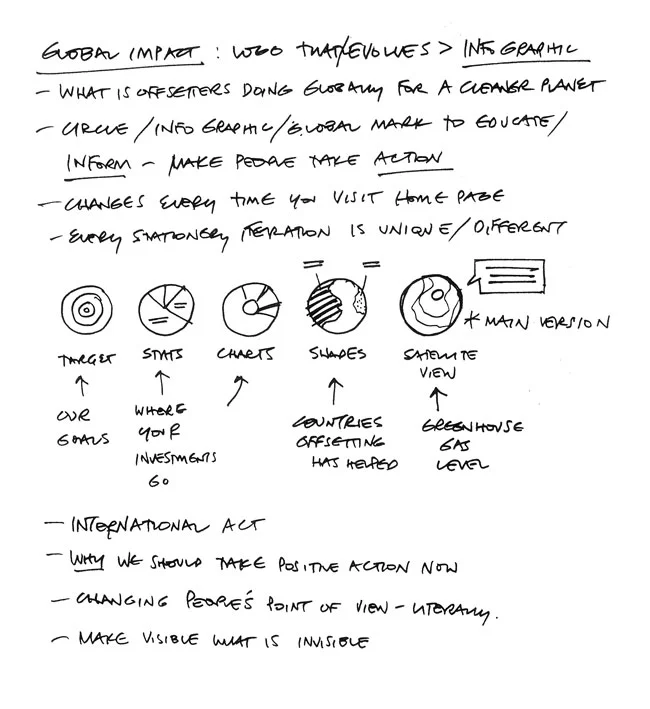 GLOBAL IMPACT : LOGO THAT/EVOLVES > INFOGRAPHIC
- WHAT IS OFFSETTERS DOING GLOBALLY FOR A CLEANER PLANET
- CIRCLE/INFOGRAPHIC/GLOBAL MARK TO EDUCATE/
INFORM - MAKE PEOPLE TAKE ACTION
- CHANGES EVERY TIME YOU VISIT HOME PAGE
- EVERY STATIONERY ITERATION IS UNIQUE/DIFFERENT
* MAIN VERSION
TARGET STATS CHARTS SHAPES SATELLITE
VIEW
OUR
GOALS
WHERE
YOUR
INVESTMENTS
GO
COUNTRIES
OFFSETTING
HAS HELPED
GREENHOUSE
GAS
LEVEL
- INTERNATIONAL ACT
- WHY WE SHOULD TAKE POSITIVE ACTION NOW
- CHANGING PEOPLE'S POINT OF VIEW - LITERALLY.
- MAKE VISIBLE WHAT IS INVISIBLE